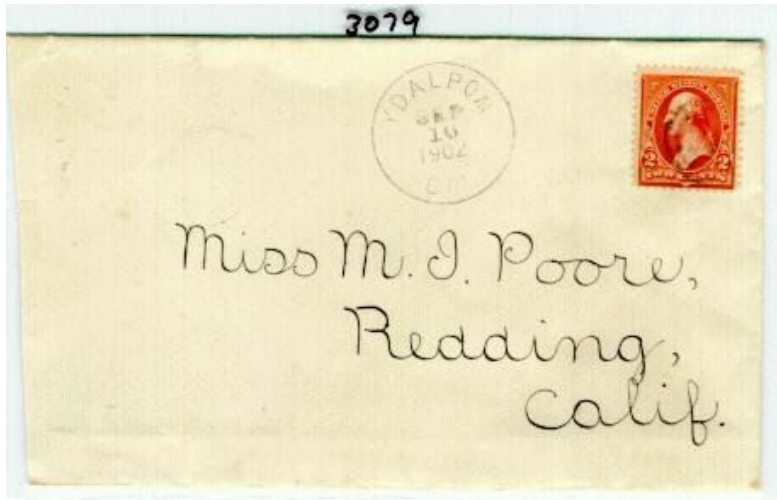 3079
YDALPOM
SEP
10
1902
CAL
2 2
Miss M. I. Poore,
Redding,
Calif.